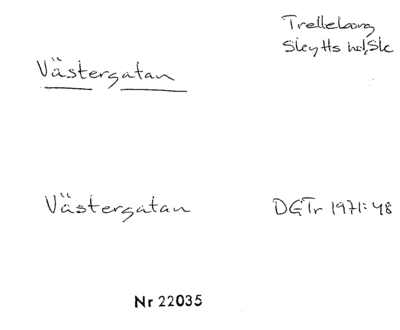 Trelleborg
Skytts hd, Sk
Västergatan
Västergatan DGTr 1971:48
Nr 22035